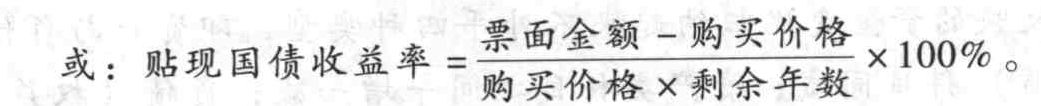 或：贴现国债收益率 = \frac{票面金额 - 购买价格}{购买价格 × 剩余年数} × 100%。